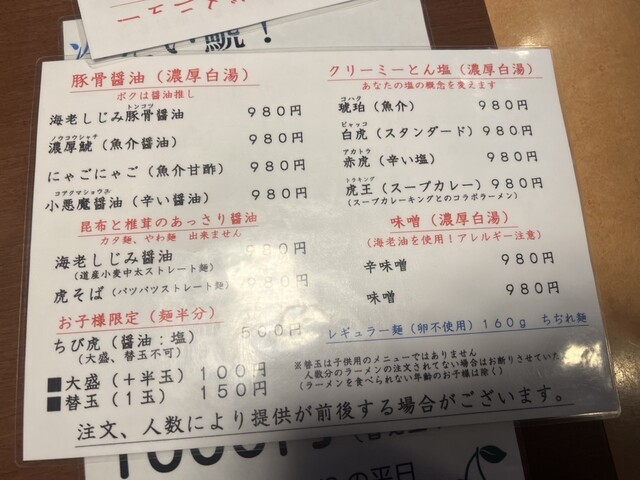 メニュー
鯱！
豚骨醤油（濃厚白湯）
ボクは醤油推し
トンコツ
海老しじみ豚骨醤油 ９８０円
ノウコウシャチ
濃厚鯱（魚介醤油） ９８０円
にゃごにゃご（魚介甘酢） ９８０円
コアクマショウホ
小悪魔醤油（辛い醤油） ９８０円
昆布と椎茸のあっさり醤油
カタ麺、やわ麺 出来ません
海老しじみ醤油 ９８０円
（道産小麦中太ストレート麺）
虎そば（パツパツストレート麺） ９８０円
お子様限定（麺半分）
ちび虎（醤油：塩） ５００円
（大盛、替玉不可）
■大盛（＋半玉） １００円
■替玉（１玉） １５０円
クリーミーとん塩（濃厚白湯）
あなたの塩の概念を変えます
コハク
琥珀（魚介） ９８０円
ビャッコ
白虎（スタンダード） ９８０円
アカトラ
赤虎（辛い塩） ９８０円
トラキング
虎王（スープカレー） ９８０円
（スープカレーキングとのコラボラーメン）
味噌（濃厚白湯）
（海老油を使用！アレルギー注意）
辛味噌 ９８０円
味噌 ９８０円
レギュラー麺（卵不使用）１６０ｇ ちぢれ麺
※替玉は子供用のメニューではありません
人数分のラーメンの注文されてない場合はお断りさせていた
（ラーメンを食べられない年齢のお子様は除く）
注文、人数により提供が前後する場合がございます。
の平日